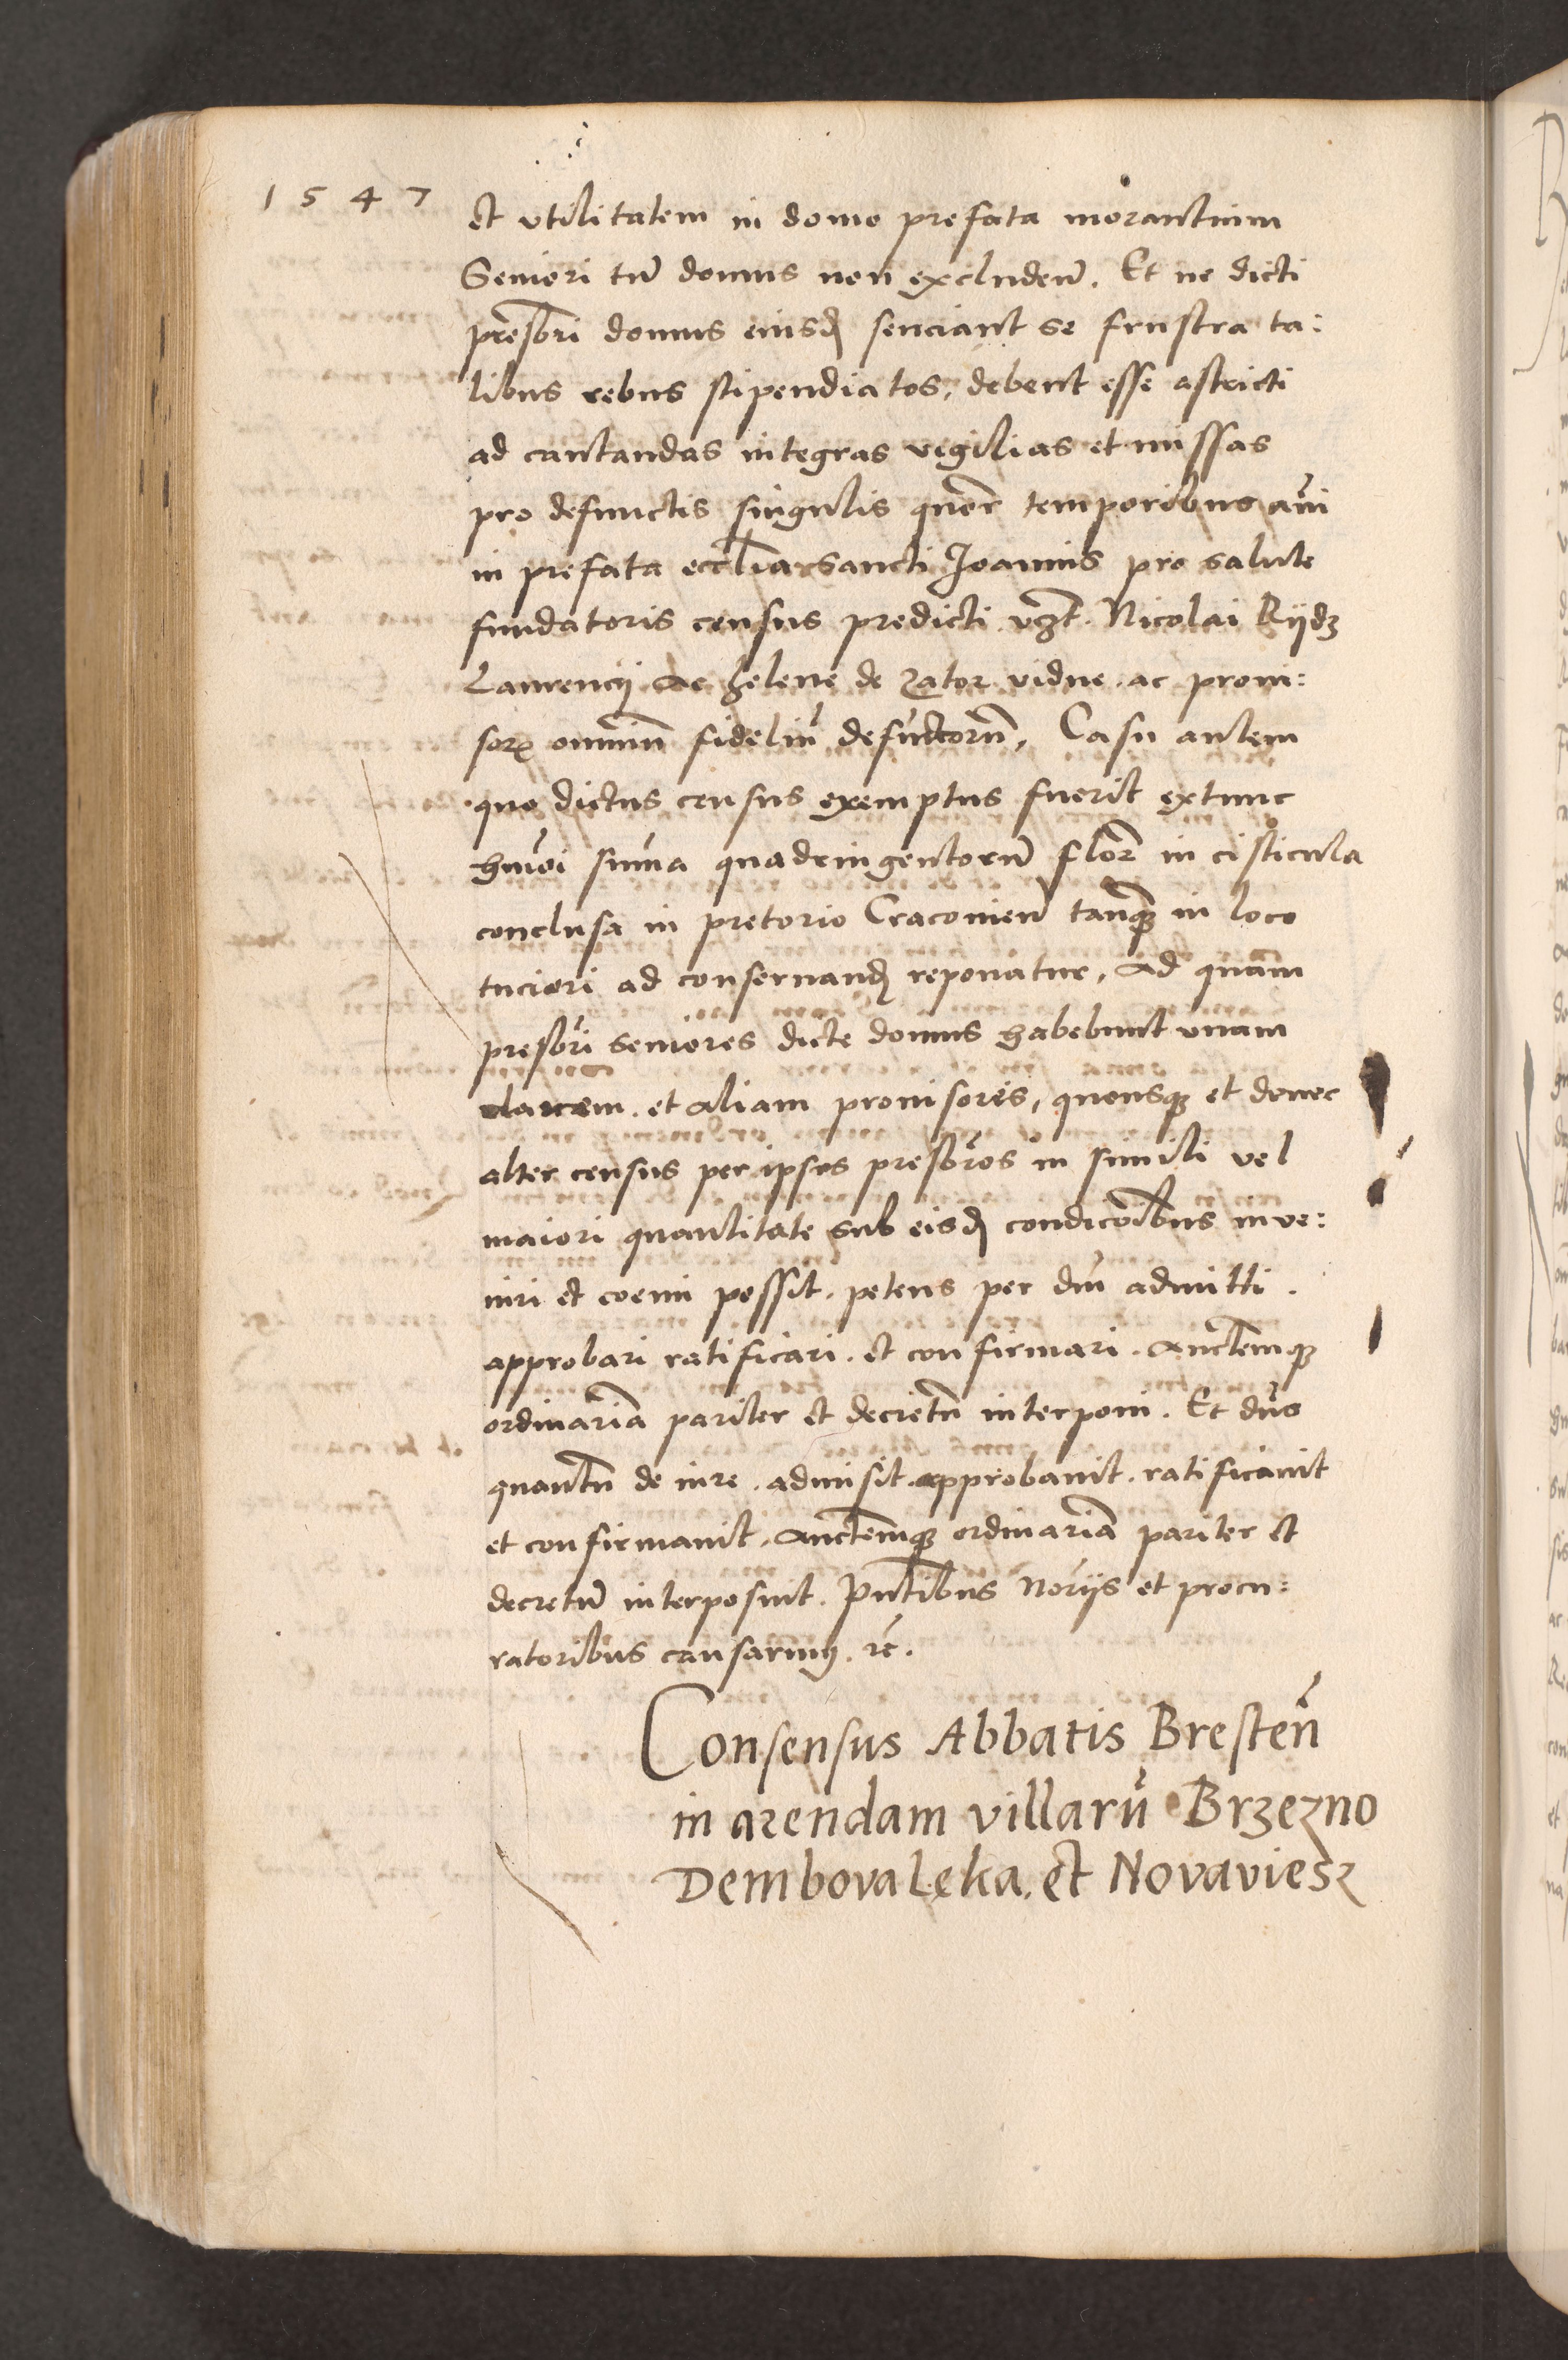 1547
et vtilitatem in domo prefata morantium
Seniori tñ domus non excludeñ. Et ne dicti
presb̄ri domus eiusd̄ senciant se frustra ta:
libus rebus stipendiatos, debent esse astricti
ad cantandas integras vigilias et missas
pro defunctis singulis temporibus
in prefata eccl̄ia sancti Joannis pro salute
fundatoris census predicti vʒt. Nicolai Rijdʒ
Laurencij ac helene de Zator vidue. ac proui:
sorꝝ omniũ fideliũ defũctorũ, Casu autem
quo dictus census exemptus fuerit extunc
hm̄oi sum̃a quadringentorũ flor̃ in cisticula
conclusa in pretorio Cracouieñ tanq̄ in loco
tuciori ad conseruand̄ reponatur, ad quam
presb̄ri seniores dicte domus habebunt vnam
clauem. et aliam prouisores, quousqꝫ et donec
alter census per ipsos presb̄ros in simili vel
maiori quantitate sub eisd̄ condicōibus inve:
niri et coemi possit. petens per dm̄ admitti.
approbari ratificari. et confirmari. auctem̄qꝫ
ordinariã pariter et decretũ interponi. Et dn̄s
quantũ de iure. admisit. approbauit. ratificauit
et confirmauit. auctem̄qꝫ ordinariã pariter et
decretũ interposuit. Pn̄tibus norijs et procu:
ratoribus causarum. ꝛc̄.
Consensus Abbatis Bresteñ
in arendam villarũ Brzezno
Dembovaleka. et Novaviesz